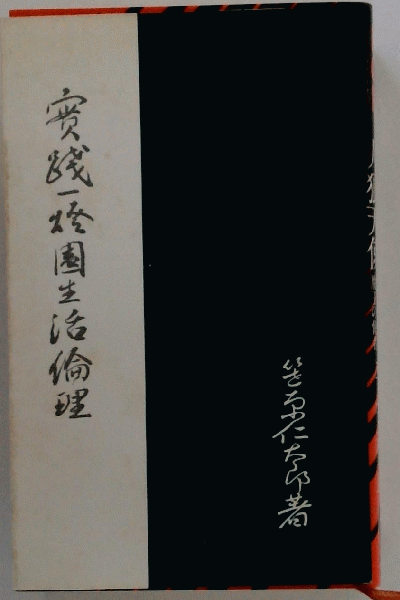 實践一燈園生活倫理
笠原仁太郎著